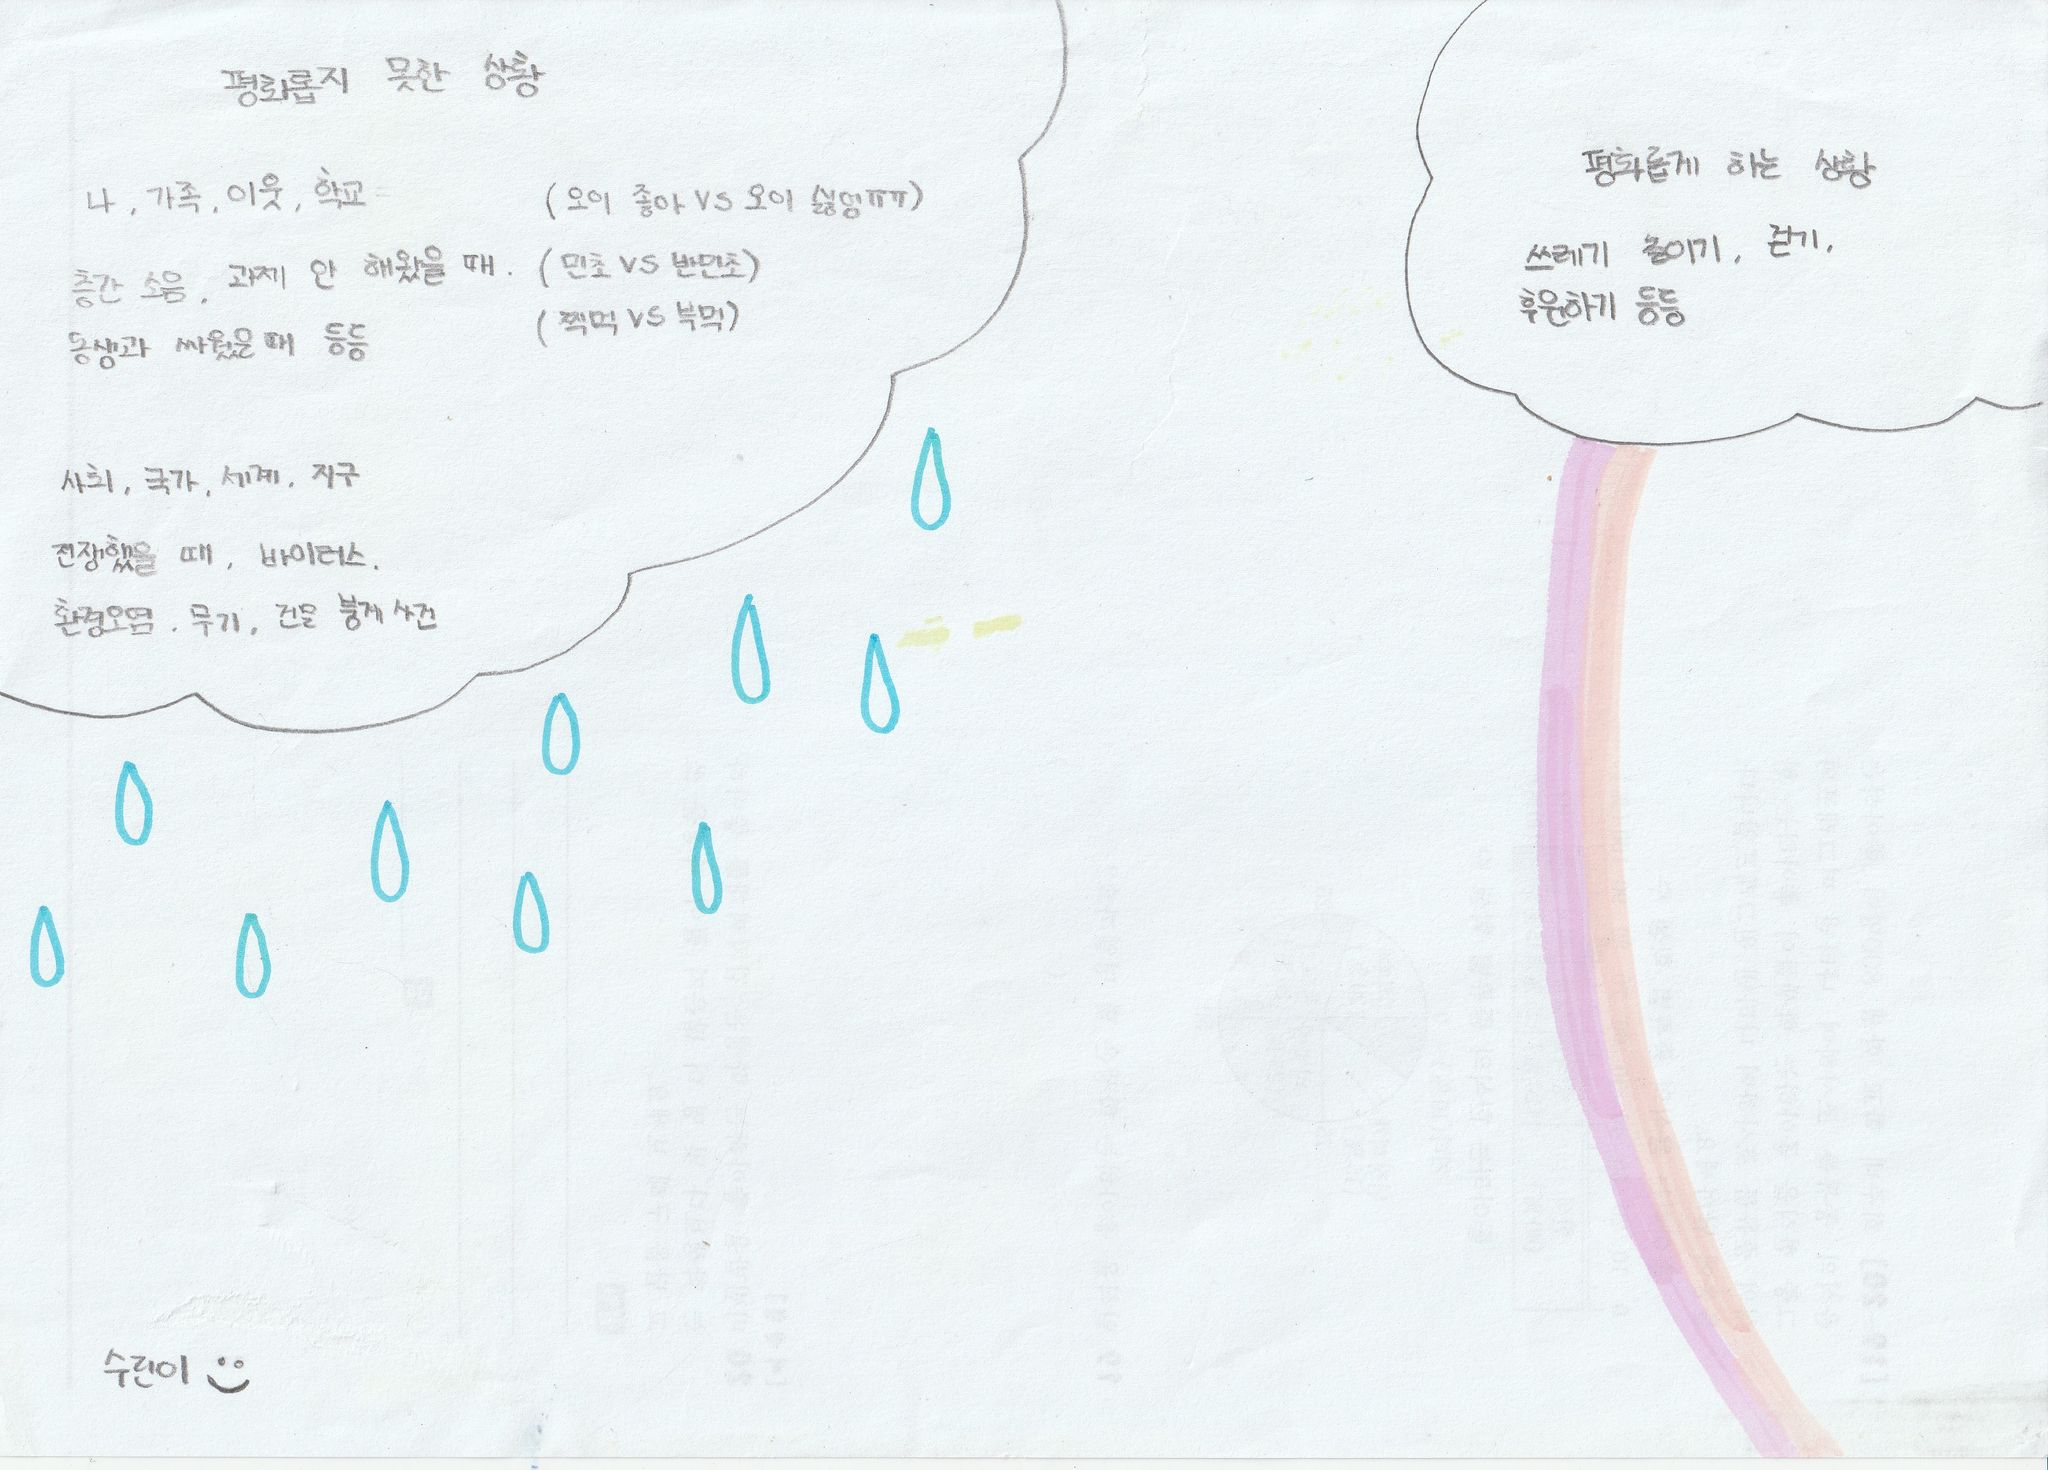 평화롭지 못한 상황
나, 가족, 이웃, 학교 (오이 좋아 VS 오이 싫엉ㅠㅠ)
층간 소음, 과제 안 해왔을 때. (민초 VS 반민초)
동생과 싸웠을 때 등등 (찍먹 VS 부먹)
사회, 국가, 세계, 지구
전쟁했을 때, 바이러스.
환경오염. 무기, 건물 붕게 사건
평화롭게 하는 상황
쓰레기 줄이기, 걷기,
후원하기 등등
수린이